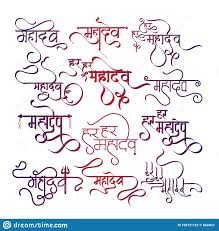 महादेव
महादेव
हर हर महादेव
महादेव
हर हर
महादेव
महादेव
महादेव
हर हर
महादेव
हर हर
महादेव
महादेव
महादेव
dreamstime.com